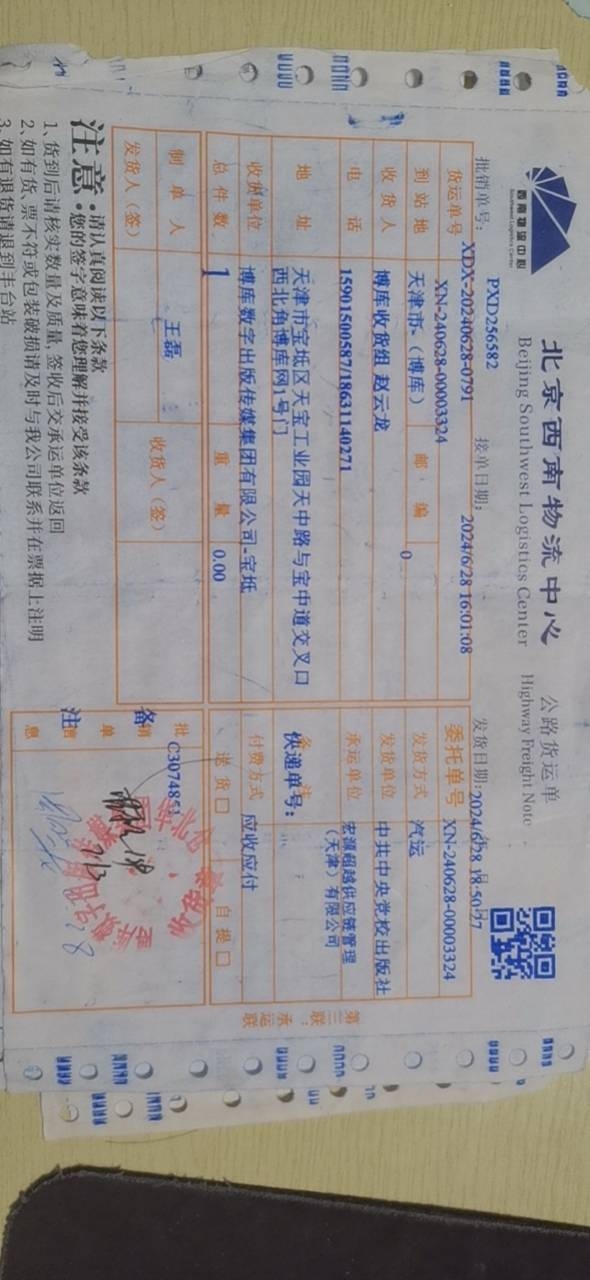 西南物流中心
Southwest Logistics Center
北京西南物流中心 公路货运单
Beijing Southwest Logistics Center Highway Freight Note
PXD256582
批销单号: XDX-20240628-0791 接单日期: 2024/6/28 16:01:08 发货日期:
货运单号 XN-240628-00003324 委托单号 XN-240628-00003324
到站地 天津市-(博库) 邮编 0 发货方式 汽运
收货人 博库收货组 赵云龙 发货单位 中共中央党校出版社
电话 15901500587/18631140271 承运单位 宏源超越供应链管理
(天津)有限公司
地址 天津市宝坻区天宝工业园天中路与宝中道交叉口
西北角博库网1号门
快递单号:
收货单位 博库数字出版传媒集团有限公司-宝坻 付费方式 应收应付
总件数 1 重量 0.00 送货□ 自提□
制单人 王磊 收货人(签)
发货人(签)
批销单 C3074851
备注
第三联:承运联
注意:请认真阅读以下条款
您的签字意味着您理解并接受该条款
1、货到后请核实数量及质量, 签收后交承运单位返回
2、如有货、票不符或包装破损请及时与我公司联系并在票据上注明
3、如有退货请退到丰台站